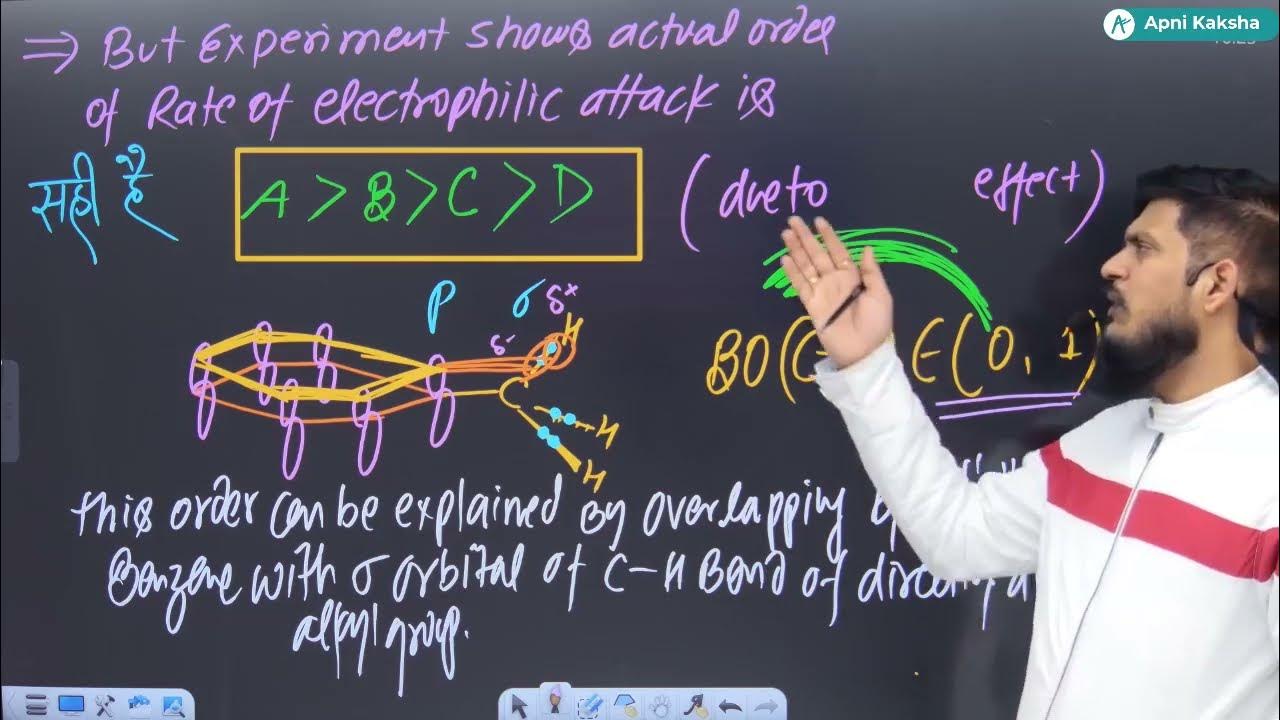 Apni Kaksha
⇒ But Experiment shows actual order
of Rate of electrophilic attack is
सही है
A > B > C > D
(due to effect)
P σ δ+
δ- H
C
H
H
BO(C ∈ (0, 1)
this order can be explained by overlapping
Benzene with σ orbital of C-H Bond of
alkyl group.